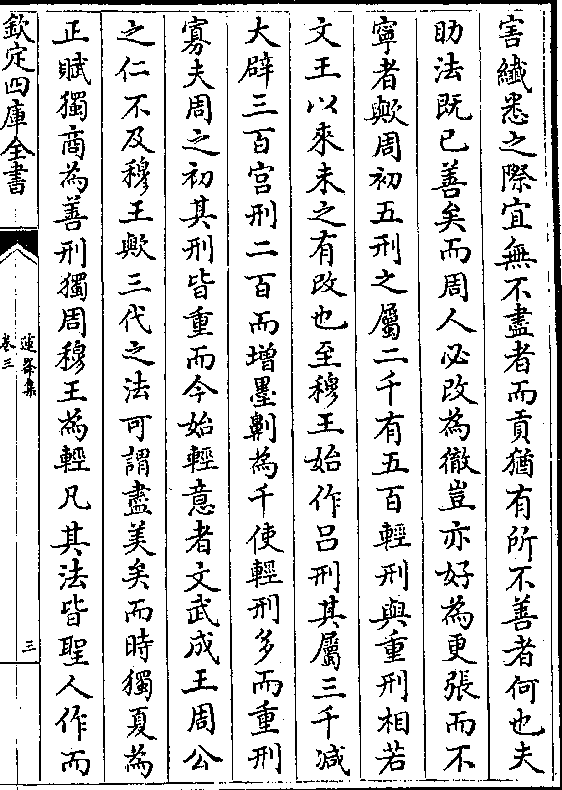 害纖悉之際宜無不盡者而貢猶有所不善者何也夫
助法既已善矣而周人必改為徹豈亦好為更張而不
寧者歟周初五刑之屬二千有五百輕刑與重刑相若
文王以來未之有改也至穆王始作呂刑其屬三千減
大辟三百宫刑二百而增墨劓為千使輕刑多而重刑
寡夫周之初其刑皆重而今始輕意者文武成王周公
之仁不及穆王歟三代之法可謂盡美矣而時獨夏為
正賦獨商為善刑獨周穆王為輕凡其法皆聖人作而
欽定四庫全書
卷三
三